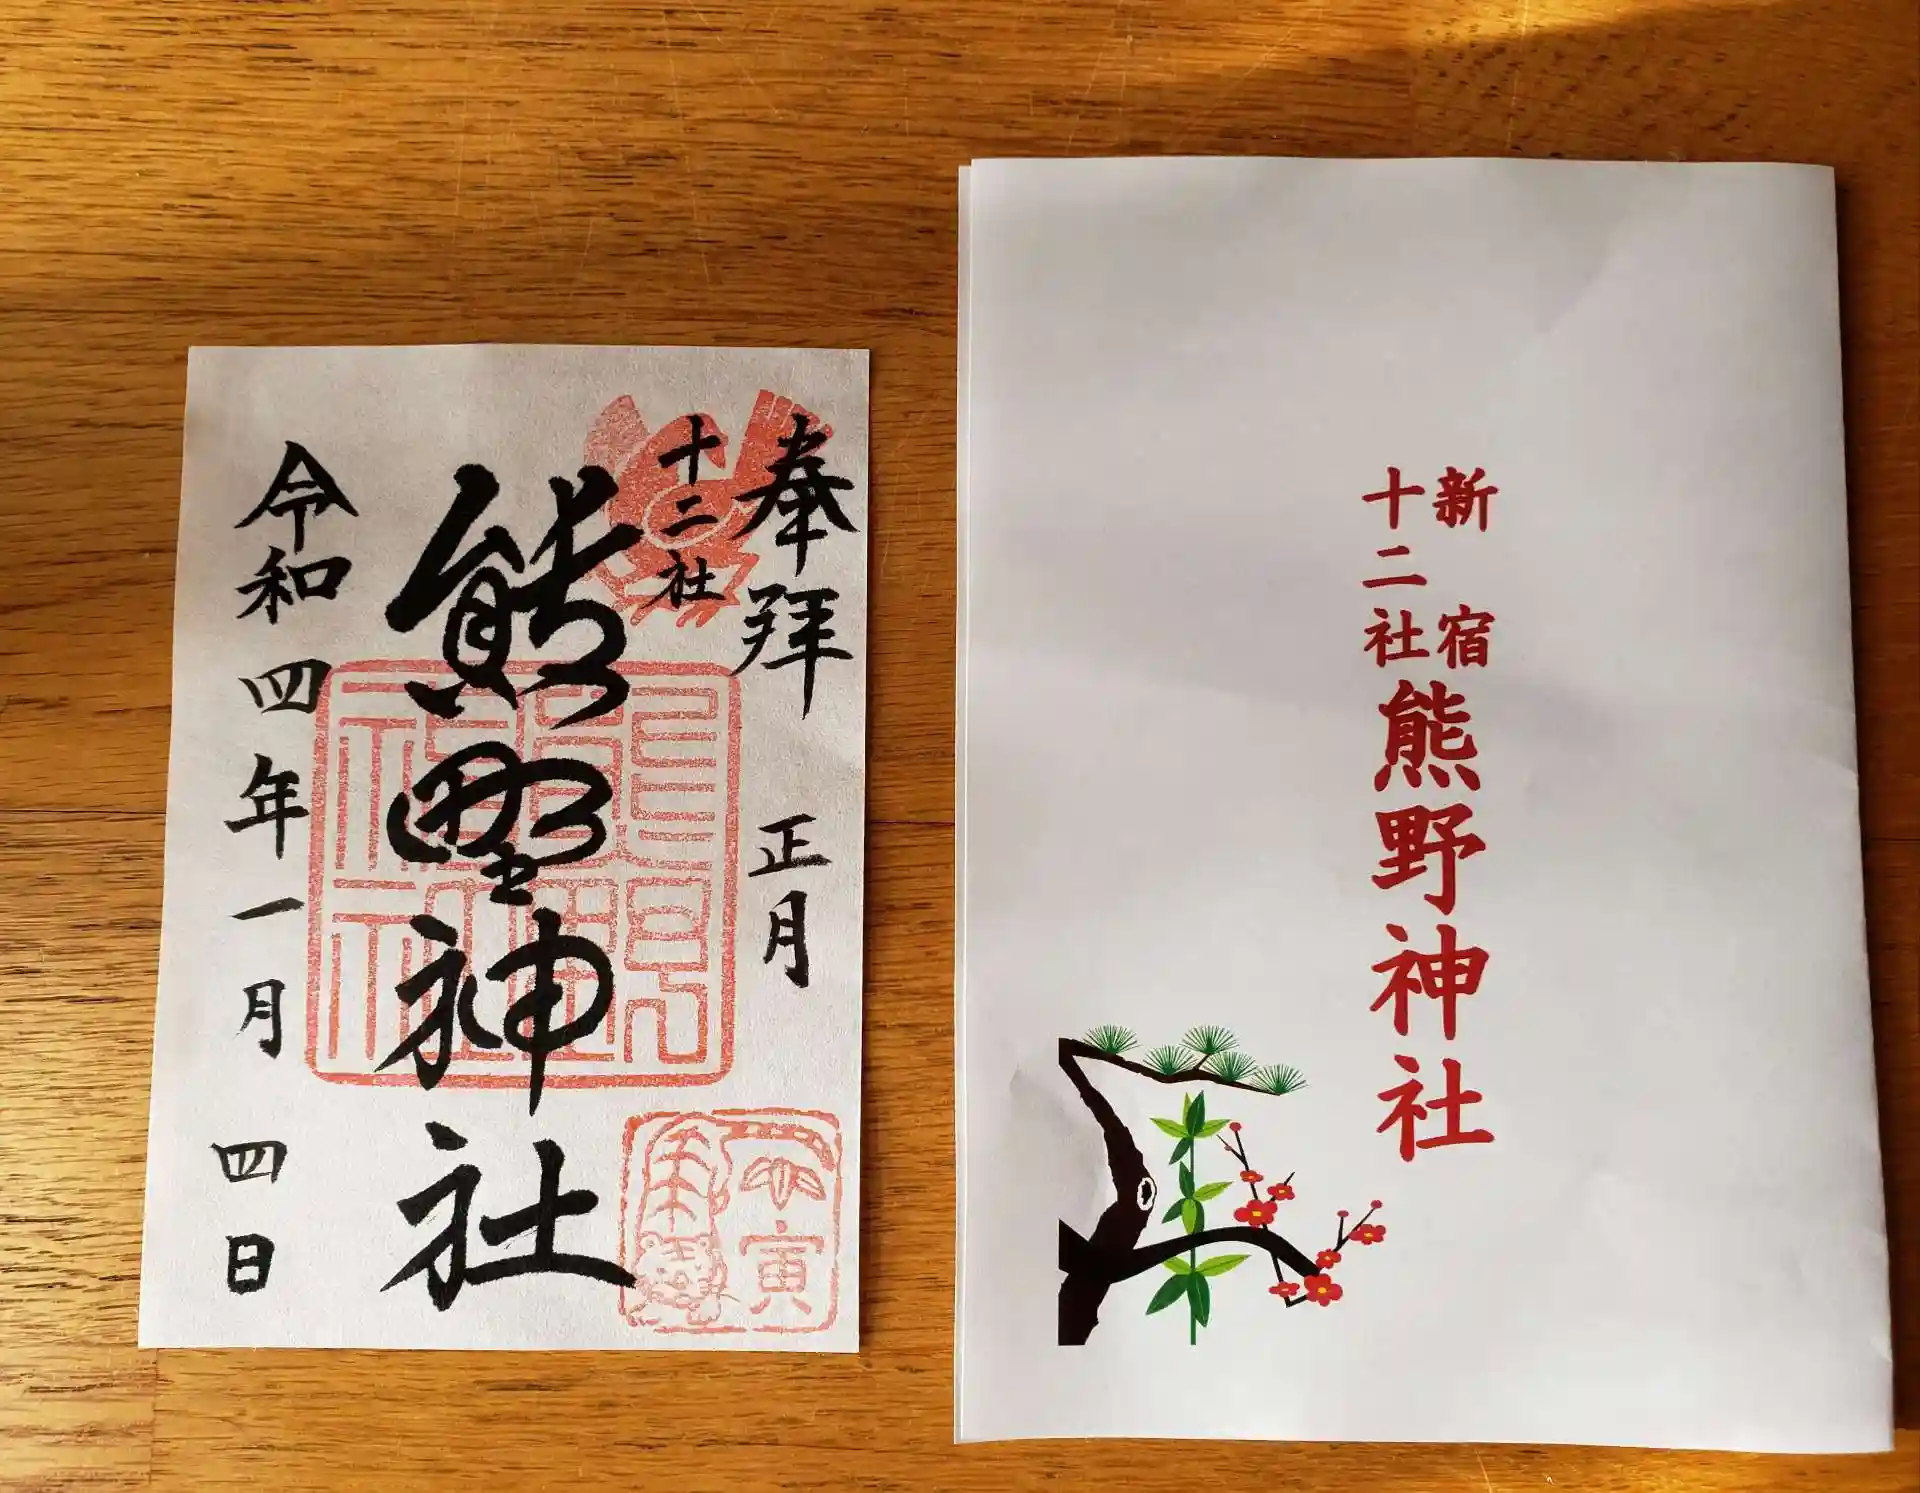 奉拝 正月
十二社
熊野神社
令和四年一月四日
壬寅
新宿
十二社
熊野神社